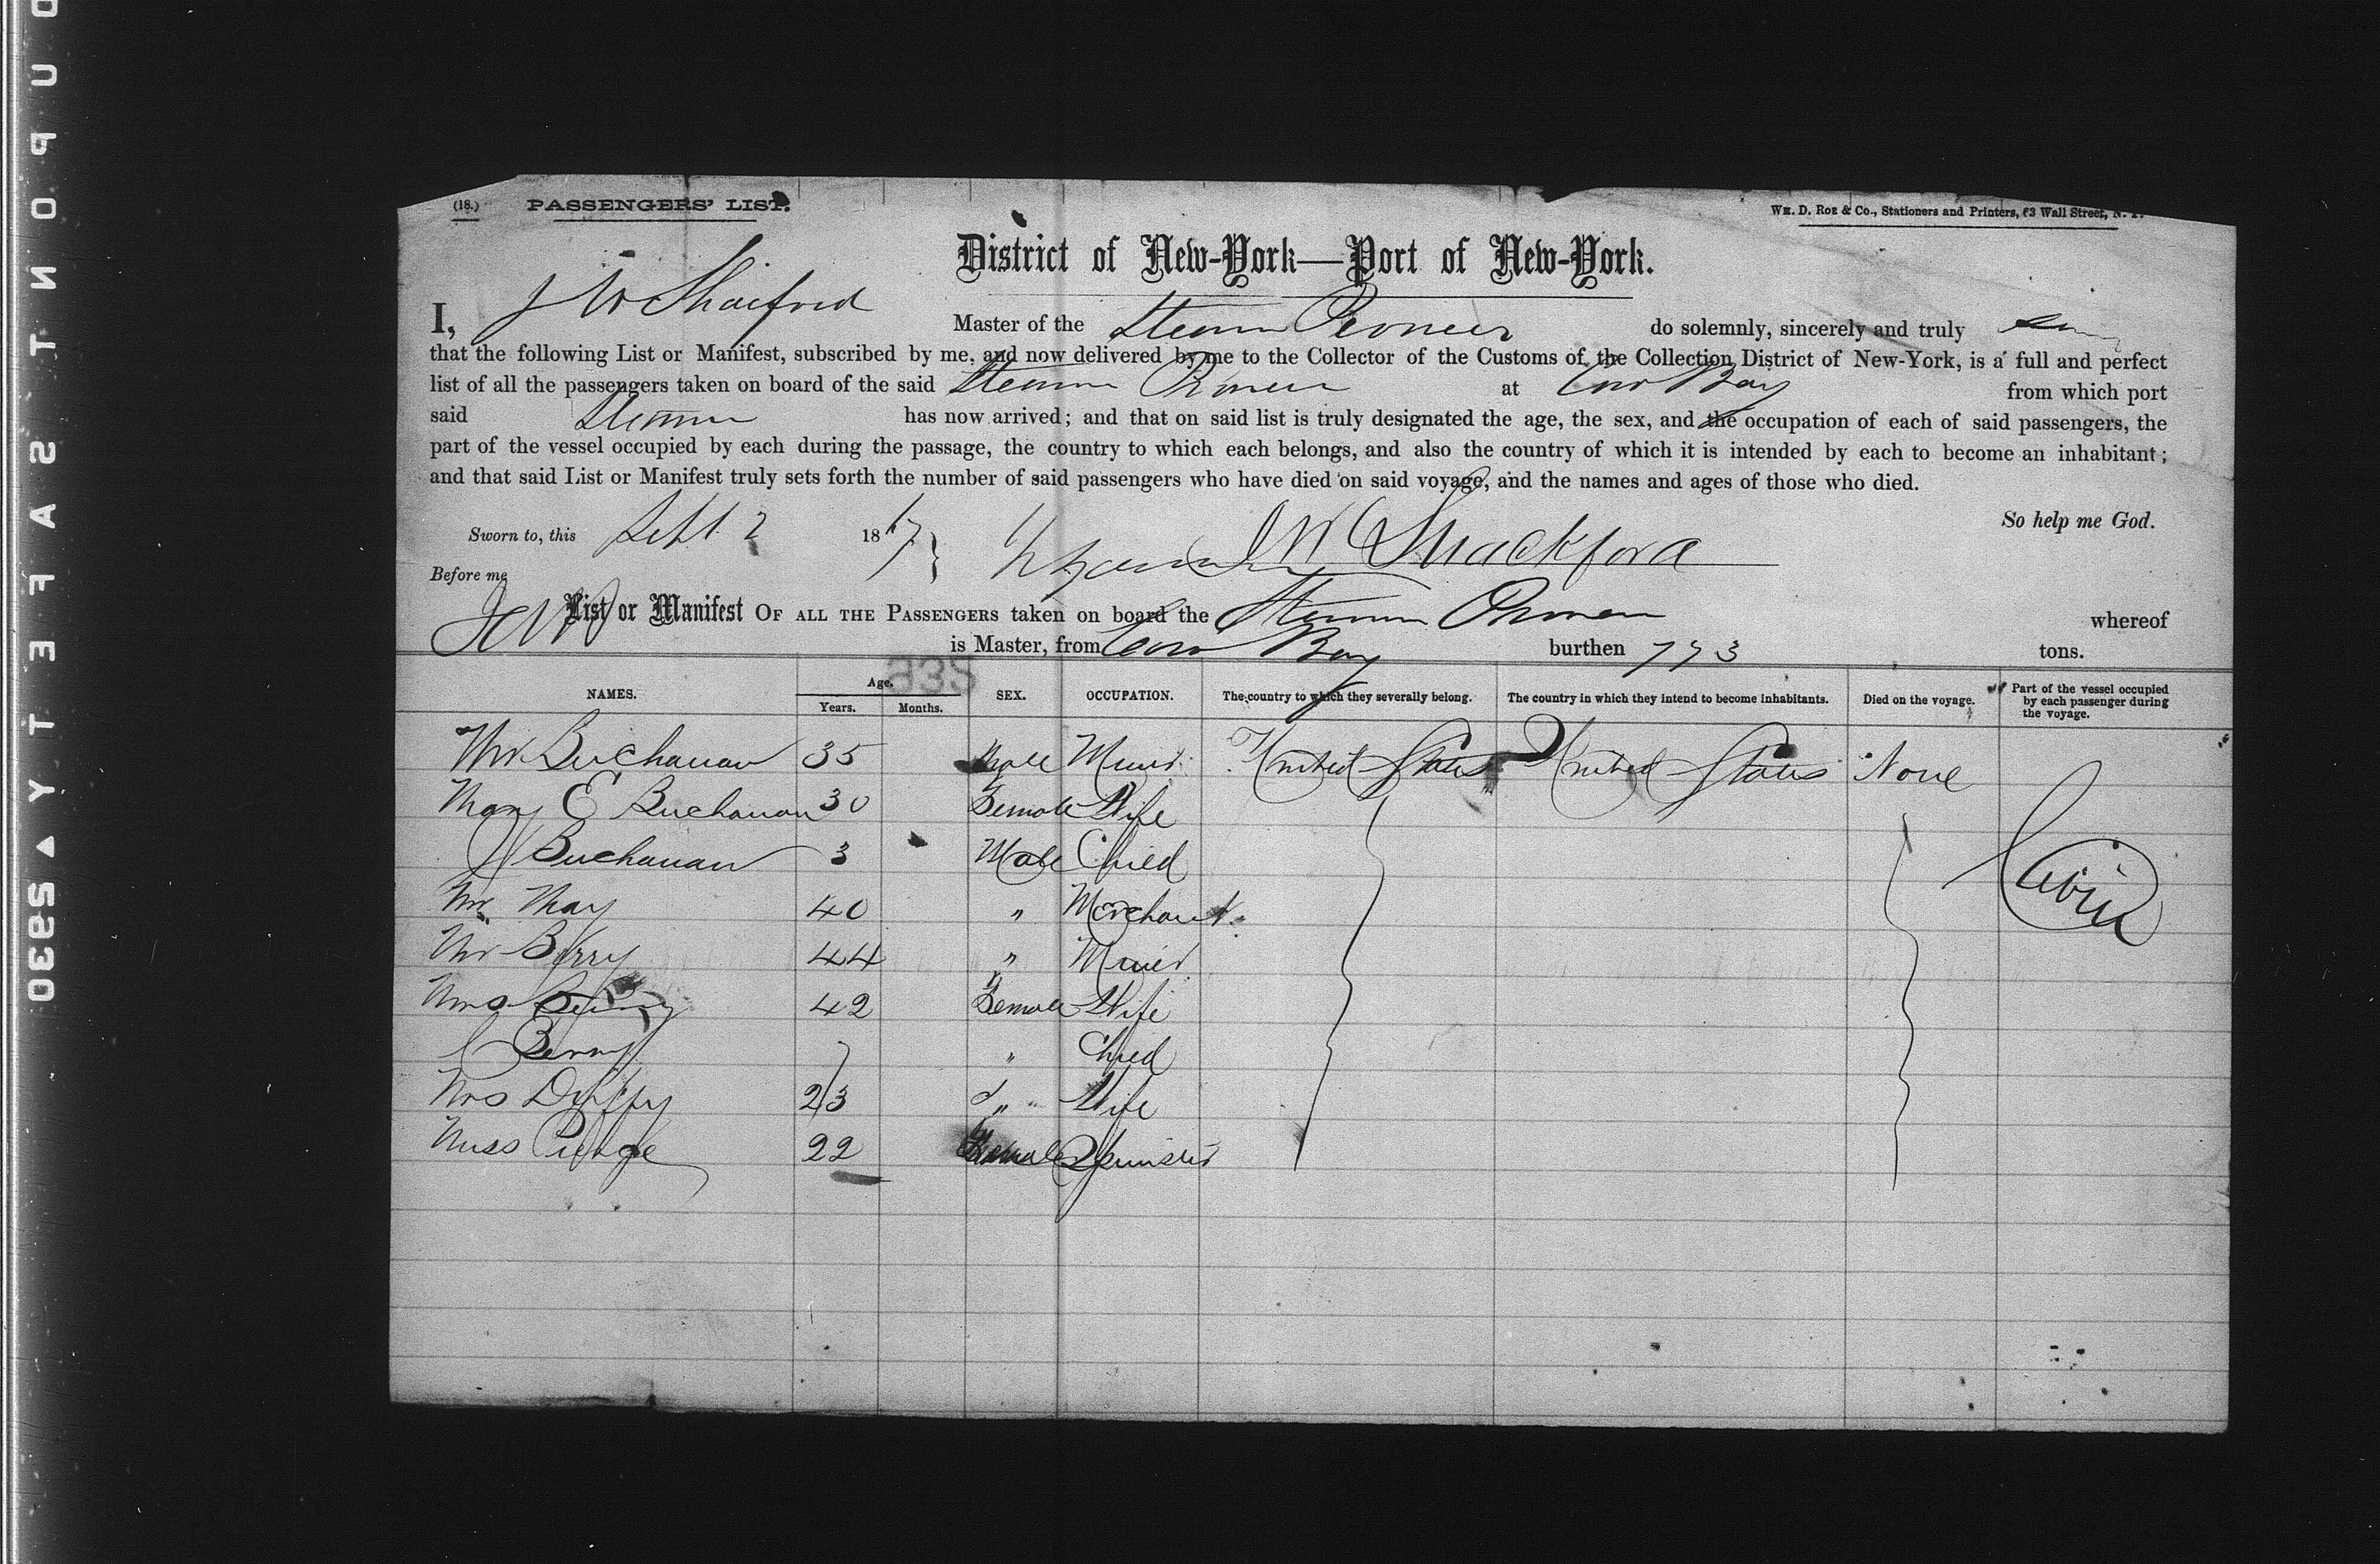 (18.) PASSENGERS' LIST.
WM. D. ROE & CO., Stationers and Printers, 63 Wall Street, N. Y.
District of New-York—Port of New-York.
I, J W Master of the Steamer Pioneer do solemnly, sincerely and truly
that the following List or Manifest, subscribed by me, and now delivered by me to the Collector of the Customs of the Collection District of New-York, is a full and perfect
list of all the passengers taken on board of the said Steamer Pioneer at Cow Bay from which port
said Steamer has now arrived; and that on said list is truly designated the age, the sex, and the occupation of each of said passengers, the
part of the vessel occupied by each during the passage, the country to which each belongs, and also the country of which it is intended by each to become an inhabitant;
and that said List or Manifest truly sets forth the number of said passengers who have died on said voyage, and the names and ages of those who died.
So help me God.
Sworn to, this Sept. 2 1867 } J W Shackford
Before me
List or Manifest OF ALL THE PASSENGERS taken on board the Steamer Pioneer whereof
is Master, from Cow Bay burthen 773 tons.
932
NAMES. Age. Years. Months. SEX. OCCUPATION. The country to which they severally belong. The country in which they intend to become inhabitants. Died on the voyage. Part of the vessel occupied by each passenger during the voyage.
Mr Buchanan 35 Male Miner United States United States None
Mary E Buchanan 30 Female Wife
J Buchanan 3 Male Child Cabin
Mr May 40 " Merchant
Mr Berry 44 " Miner
Mrs Berry 42 Female Wife
Berry 7 " Child
Mrs Duffy 23 " Wife
Miss 22 Female Spinster